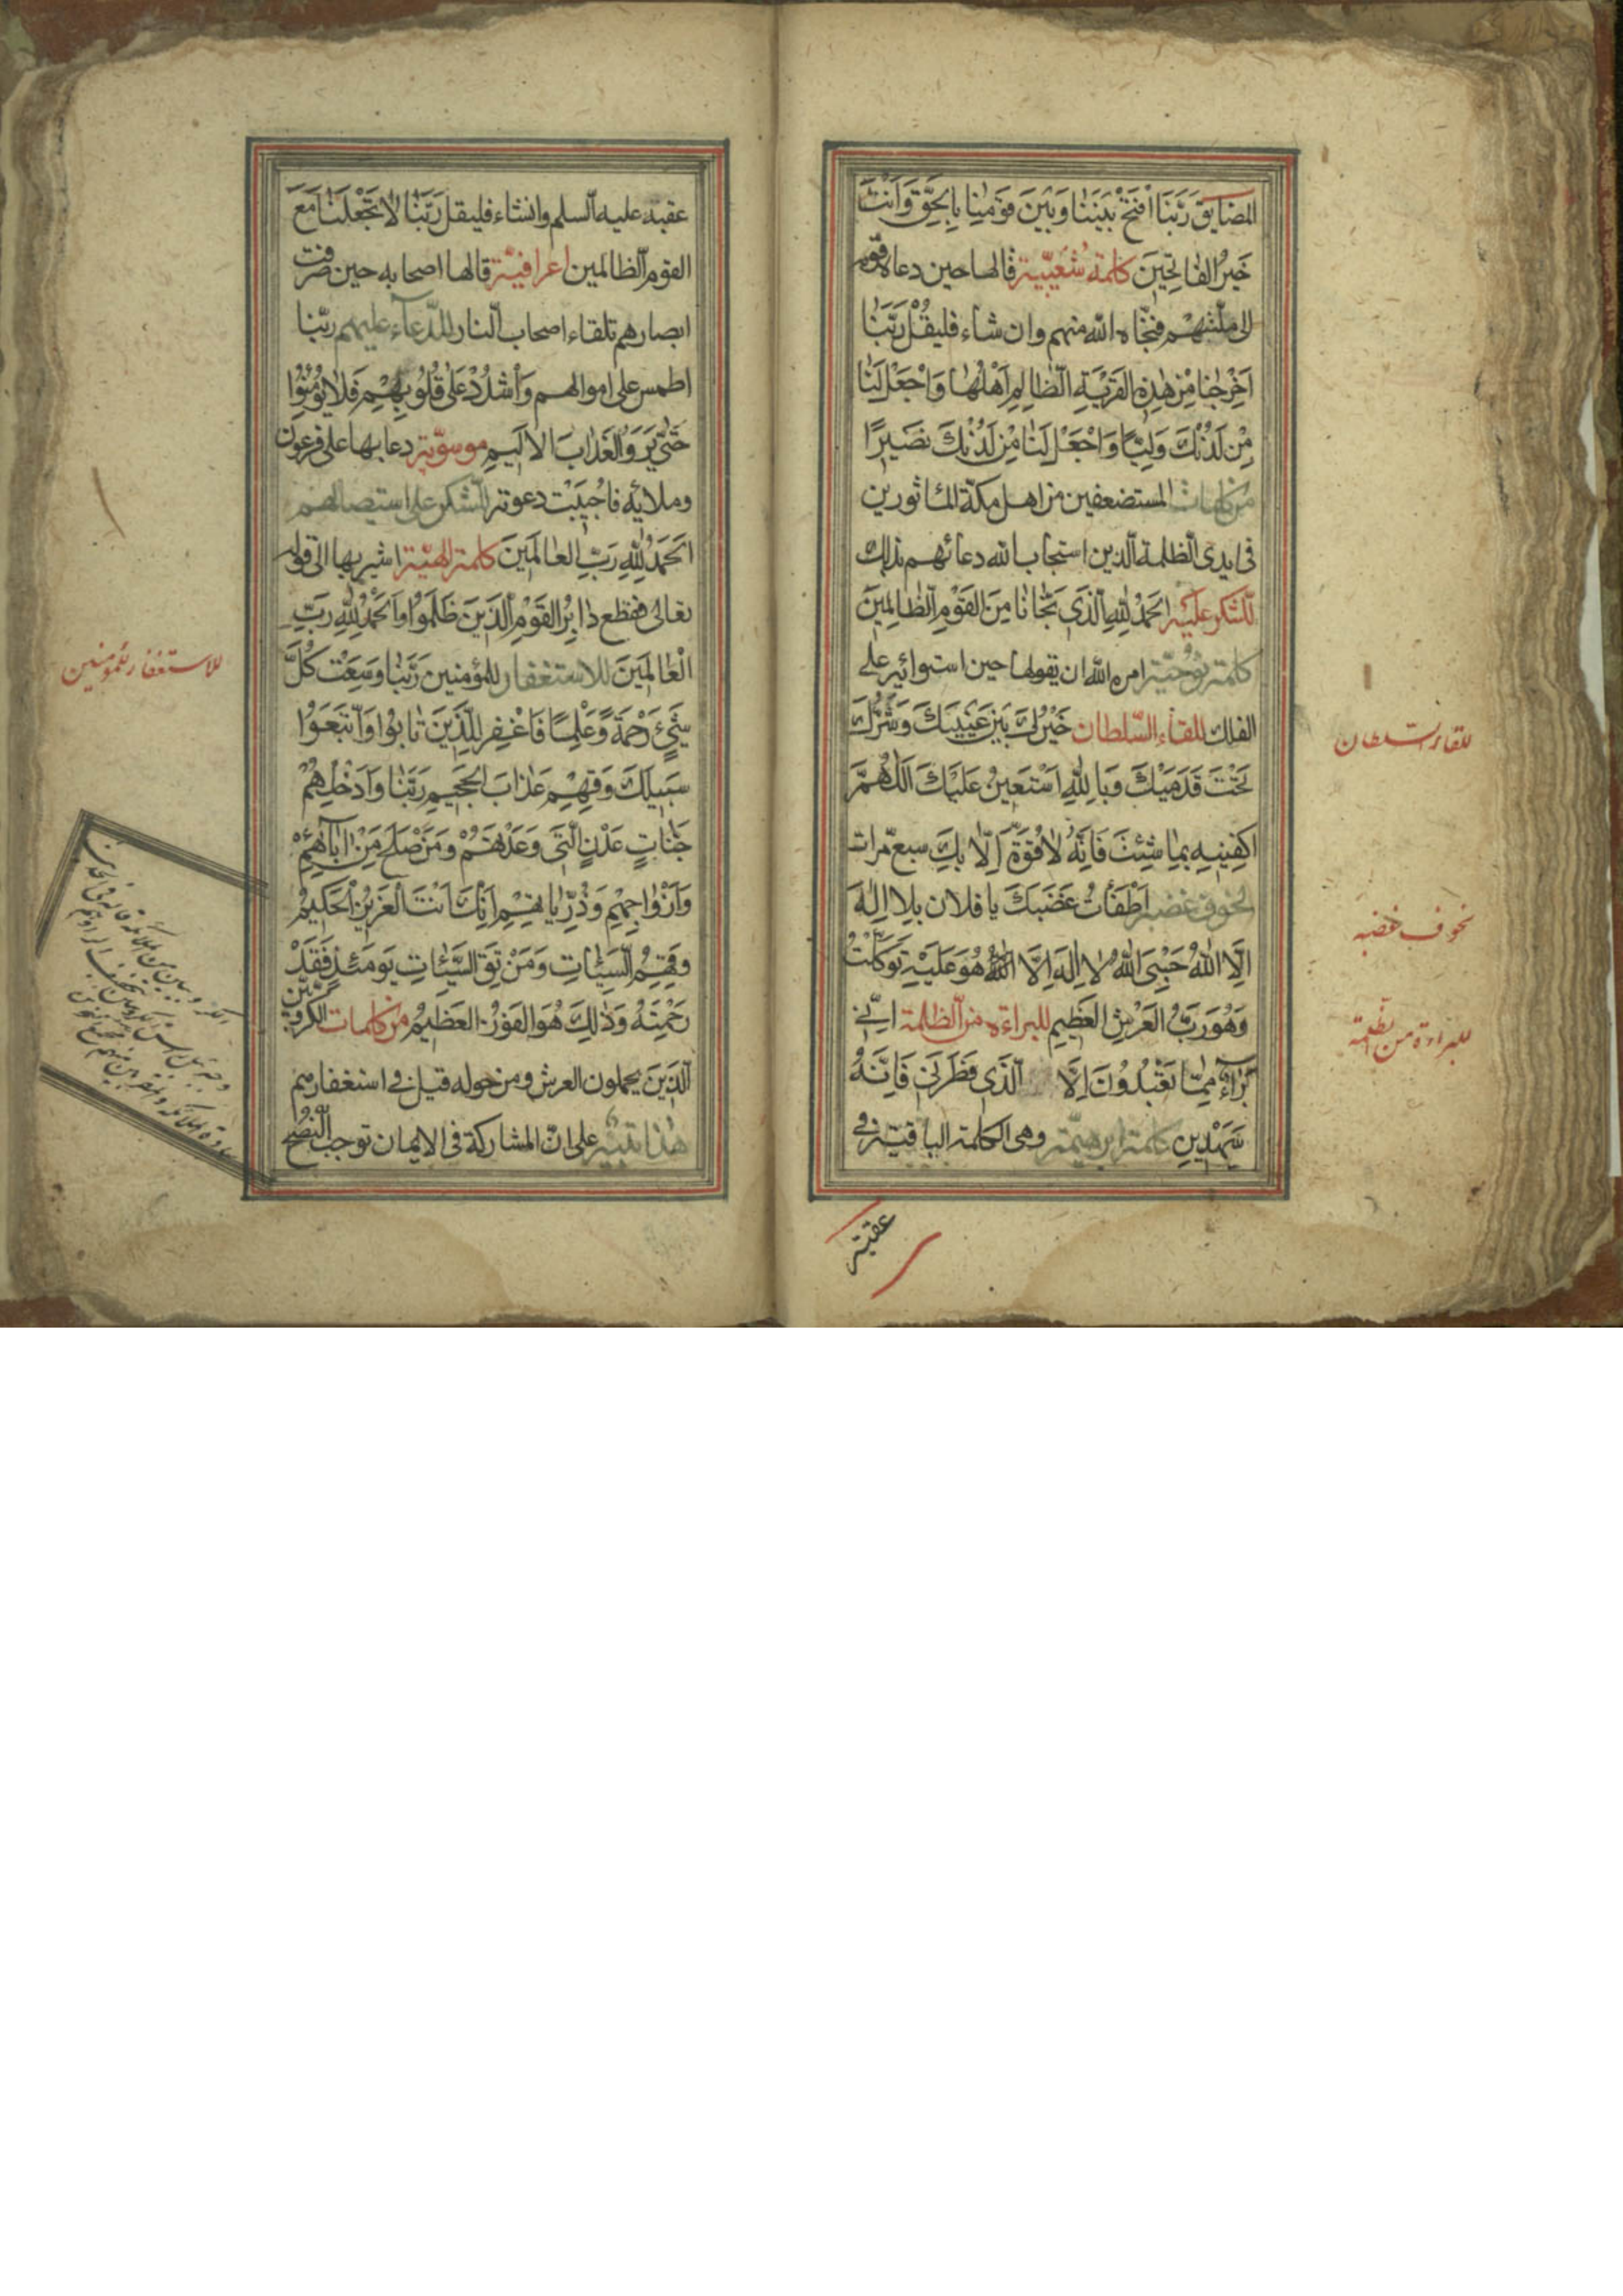 المضايق رَبَّنَا افْتَحْ بَيْنَنَا وَبَيْنَ قَوْمِنَا بِالْحَقِّ وَاَنْتَ
خَيْرُ الفَاتِحِينَ كلمة شعيبيّة قالها حين دعاه قومه
الى ملّتهم فنجّاه الله منهم وان شاء فليقل رَبَّنَا
اَخْرِجْنَا مِنْ هٰذِهِ القَرْيَةِ الظَّالِمِ اَهْلُهَا وَاجْعَلْ لَنَا
مِنْ لَدُنْكَ وَلِيًّا وَاجْعَلْ لَنَا مِنْ لَدُنْكَ نَصِيرًا
من كلمات المستضعفين من اهل مكّة المأثورين
فى ايدى الظلمة الّذين استجاب الله دعائهم بذلك
للشكر عليه اَلحَمْدُ لِلّٰهِ الَّذِى نَجَّانَا مِنَ القَوْمِ الظَّالِمِينَ
كلمة نوحيّة امره الله ان يقولها حين استوائه على
الفلك للقاء السّلطان خَيْرُكَ بَيْنَ عَيْنَيْكَ وَشَرُّكَ
تَحْتَ قَدَمَيْكَ وَبِاللّٰهِ اَسْتَعِينُ عَلَيْكَ اَللّٰهُمَّ
اكفِنِيهِ بِمَا شِئْتَ فَاِنَّهُ لَا قُوَّةَ اِلَّا بِكَ سبع مرات
لخوف غضبه اَطْفَأْتُ غَضَبَكَ يا فلان بِلَا اِلٰهَ
اِلَّا اللّٰهُ حَسْبِىَ اللّٰهُ لَا اِلٰهَ اِلَّا اللّٰهُ هُوَ عَلَيْهِ تَوَكَّلْتُ
وَهُوَ رَبُّ العَرْشِ العَظِيمِ للبراءة من الظلمة اِنَّنِى
بَرَاءٌ مِمَّا تَعْبُدُونَ اِلَّا الَّذِى فَطَرَنِى فَاِنَّهُ
سَيَهْدِينِ كلمة ابرهيميّة وهى الكلمة الباقية فى
عقبه
للقاء السلطان
لخوف غضبه
للبراءة من الظلمة
عقبه عليه السلم وان شاء فليقل رَبَّنَا لَا تَجْعَلْنَا مَعَ
القوم الظالمين اعرافيّة قالها اصحابه حين صرفت
ابصارهم تلقاء اصحاب النار للدّعاء عليهم ربّنا
اطمس على اموالهم وَاشْدُدْ عَلَى قُلُوبِهِمْ فَلَا يُؤْمِنُوا
حَتَّى يَرَوُا العَذَابَ الاَلِيمَ موسويّة دعا بها على فرعون
وملائه فاُجِيبَتْ دعوته للشكر على استيصالهم
اَلحَمْدُ لِلّٰهِ رَبِّ العَالَمِينَ كلمة الهيّة اشير بها الى قوله
تعالى فقطع دَابِرُ القَوْمِ الَّذِينَ ظَلَمُوا وَالحَمْدُ لِلّٰهِ رَبِّ
الْعَالَمِينَ للاستغفار للمؤمنين رَبَّنَا وَسِعْتَ كُلَّ
شَىْءٍ رَحْمَةً وَعِلْمًا فَاغْفِرْ لِلَّذِينَ تَابُوا وَاتَّبَعُوا
سَبِيلَكَ وَقِهِمْ عَذَابَ الجَحِيمِ رَبَّنَا وَاَدْخِلْهُمْ
جَنَّاتِ عَدْنٍ الَّتِى وَعَدْتَهُمْ وَمَنْ صَلَحَ مِنْ اٰبَائِهِمْ
وَاَزْوَاجِهِمْ وَذُرِّيَّاتِهِمْ اِنَّكَ اَنْتَ العَزِيزُ الحَكِيمُ
وَقِهِمُ السَّيِّئَاتِ وَمَنْ تَقِ السَّيِّئَاتِ يَوْمَئِذٍ فَقَدْ
رَحِمْتَهُ وَذٰلِكَ هُوَ الفَوْزُ العَظِيمُ من كلمات الكروبيّين
الّذين يحملون العرش ومن حوله قيل فى استغفارهم
هذا تنبيه على انّ المشاركة فى الايمان توجب النصح
للاستغفار للمؤمنين